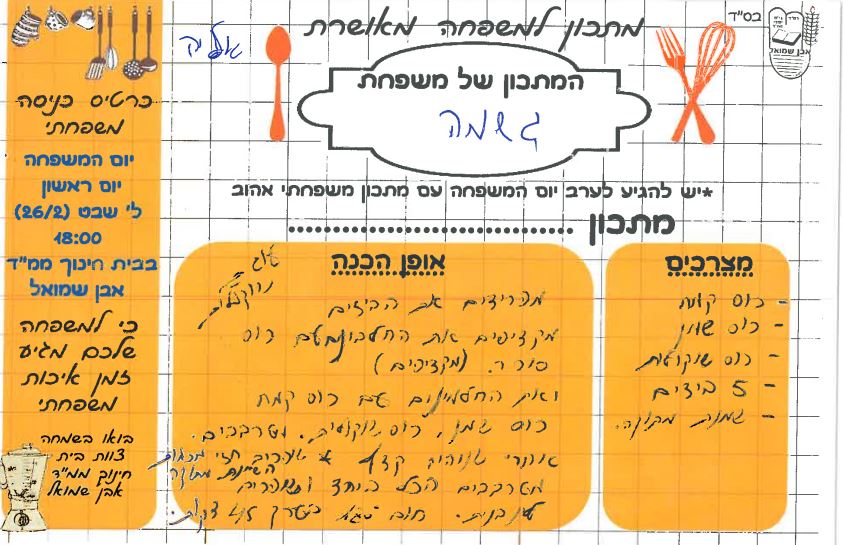 בס"ד
אבן שמואל
מתכון למשפחה מאושרת
המתכון של משפחת
גשמה
*יש להגיע לערב יום המשפחה עם מתכון משפחתי אהוב
מתכון ..............................
מצרכים
- כוס קמח
- כוס שמן
- כוס שוקולית
- 5 ביצים
- שמנת מתוקה.
אופן הכנה
עוגת
מפרידים את הביצים
מקציפים את החלבונים עם כוס
סוכר. (מקציפים)
ואת החלמונים עם כוס קמח
כוס שמן, כוס שוקולית. מערבבים.
חצי
השמנת מתוקה
מערבבים הכל ביחד ושופכים
לתבנית. חום 45 דקות.
כרטיס כניסה
משפחתי
יום המשפחה
יום ראשון
ל' שבט (26/2)
18:00
בבית חינוך ממ"ד
אבן שמואל
כי למשפחה
שלכם מגיע
זמן איכות
משפחתי
בואו בשמחה
צוות בית
חינוך ממ"ד
אבן שמואל